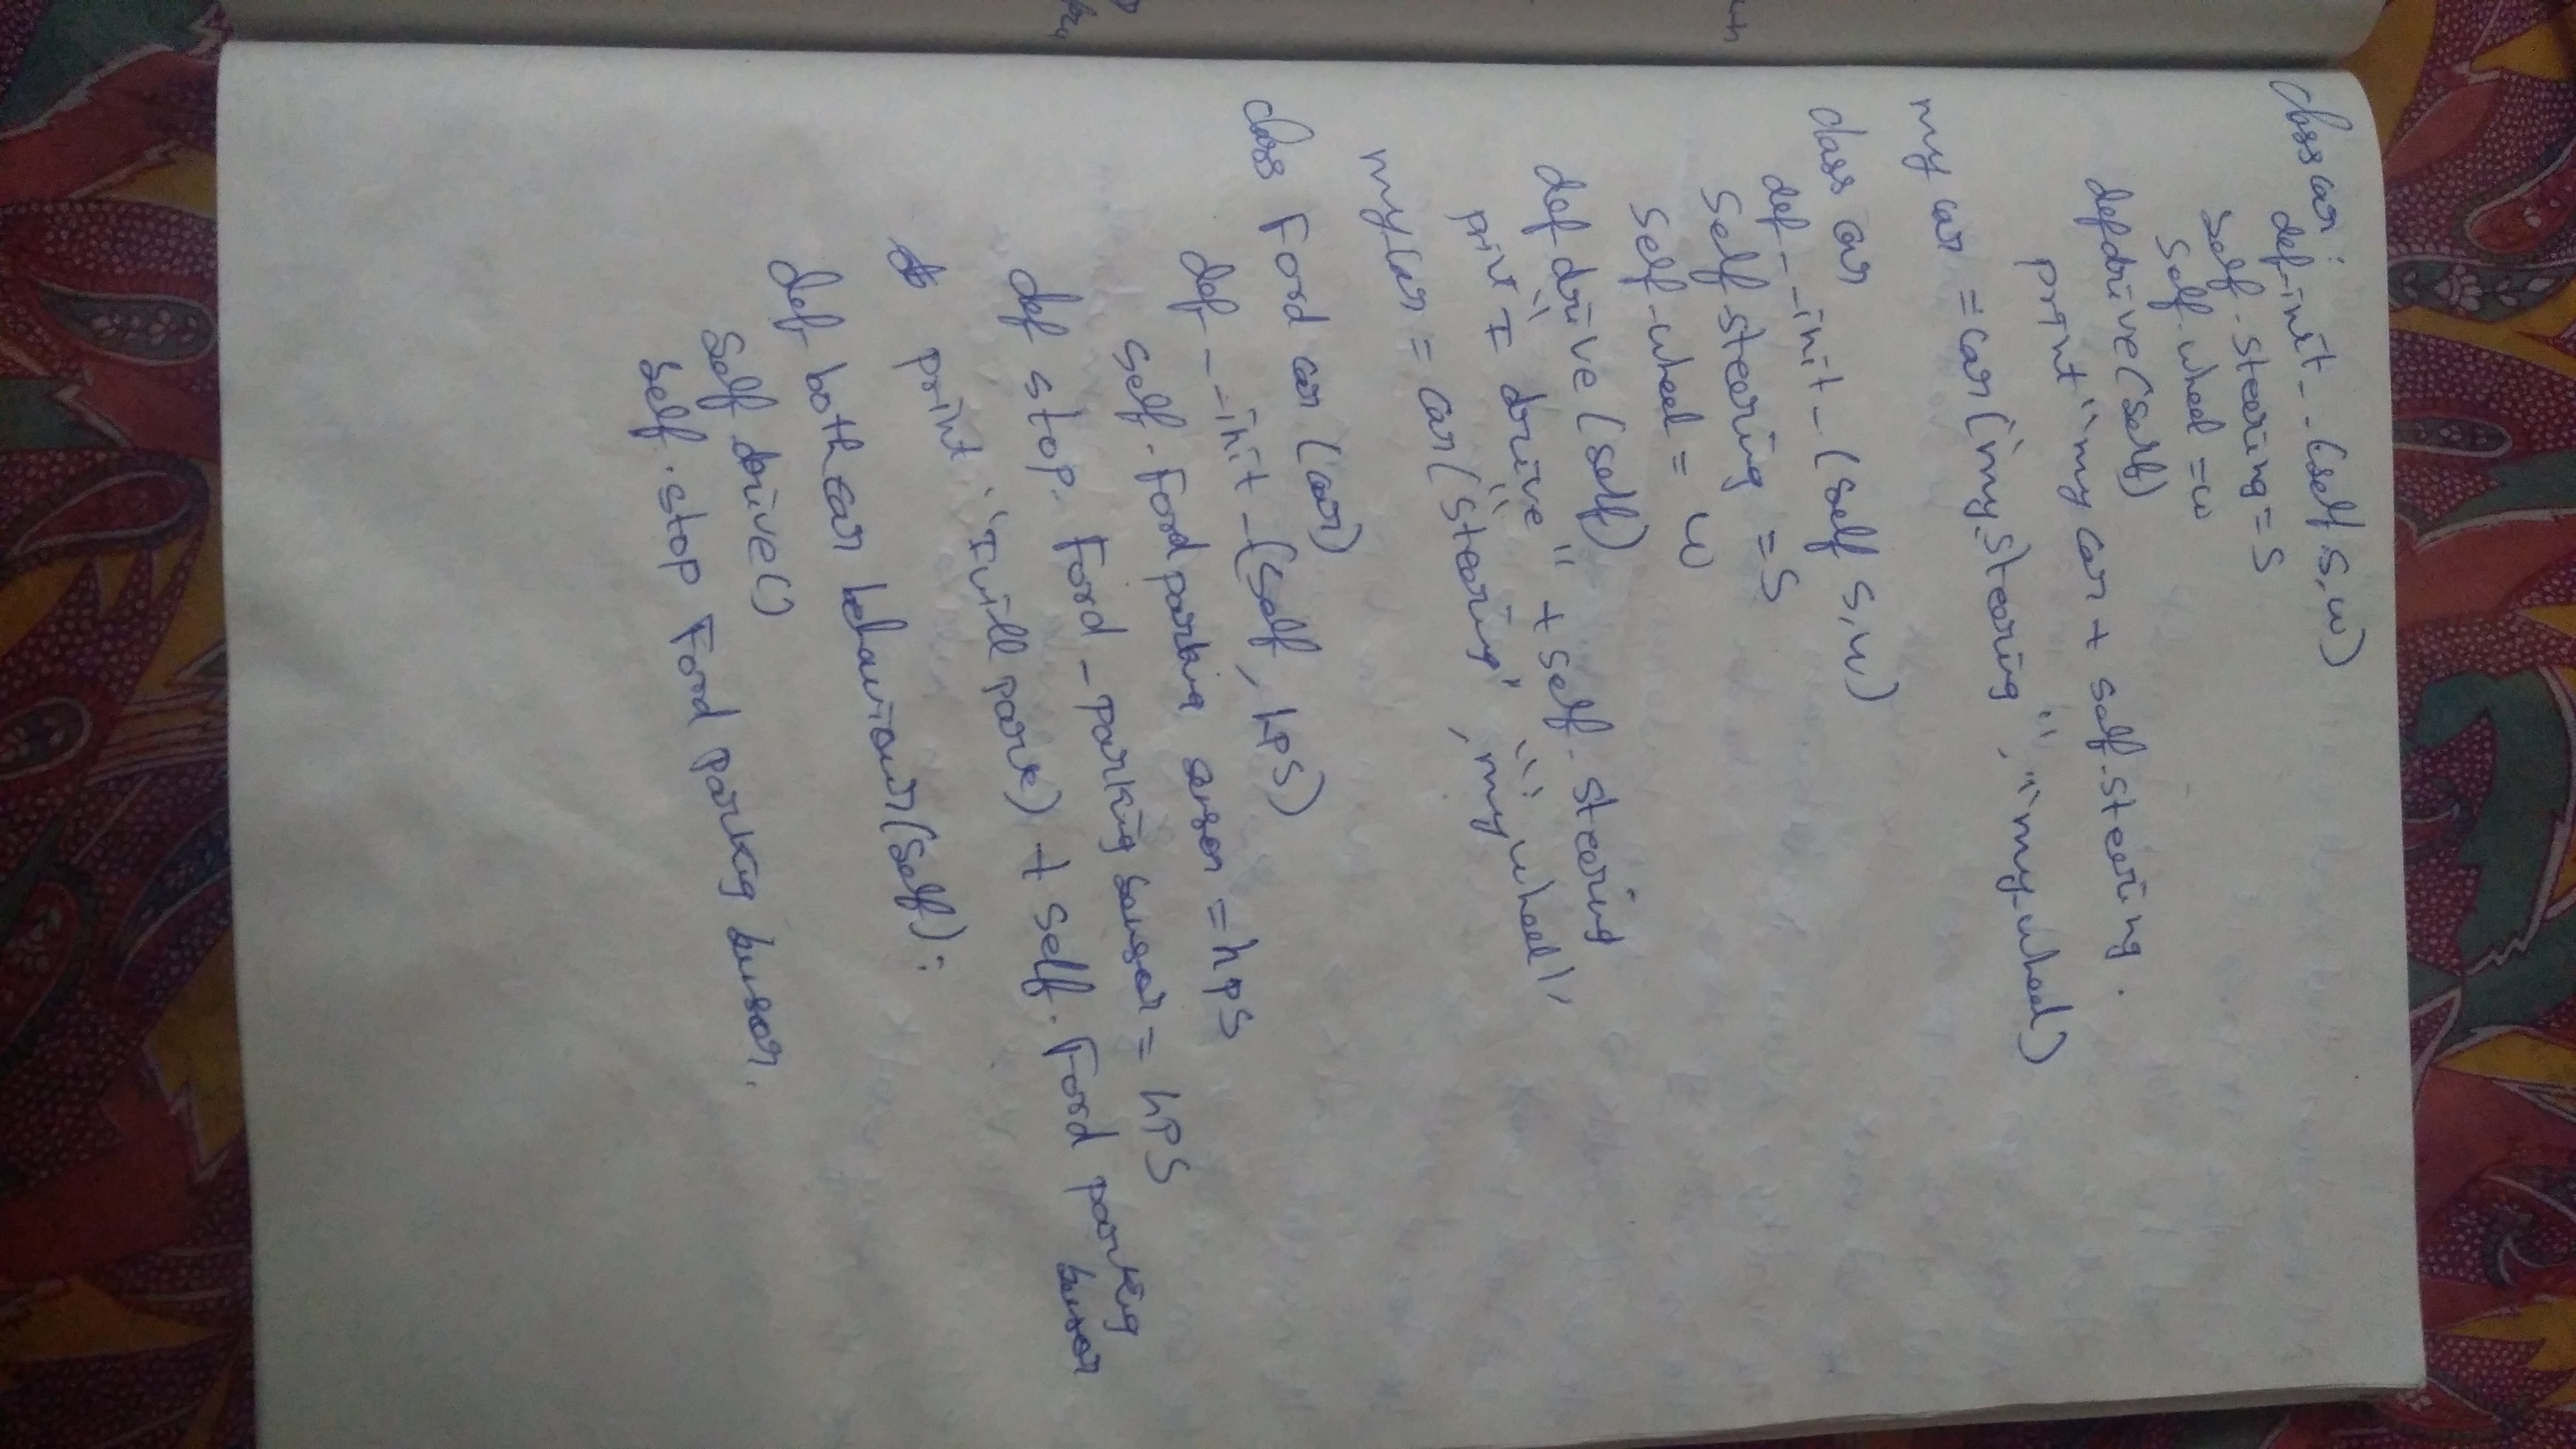 class car:
def-init--(self s,w)
self.stearing = s
self.wheel = w
def drive(self)
print "my car + self.stearing.
my car = car("my stearing", "my wheel)
class car
def--init-(self s,w)
self stearing = s
self.wheel = w
def drive (self)
print "I drive" + self.stearing
my car = car("stearing", "my wheel)
class Ford car (car)
def--init-(self, hps)
self.Ford parking sensor = hps
def stop. Ford-parking sensor = hps
print "I will park) + self.Ford parking sensor
def both car behaviour(self):
self drive()
self.stop Ford parking sensor.